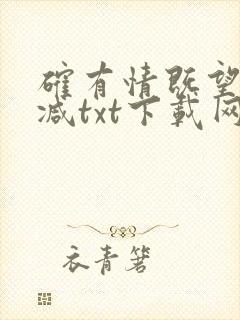 確有情既望
减txt下載网
衣青箬